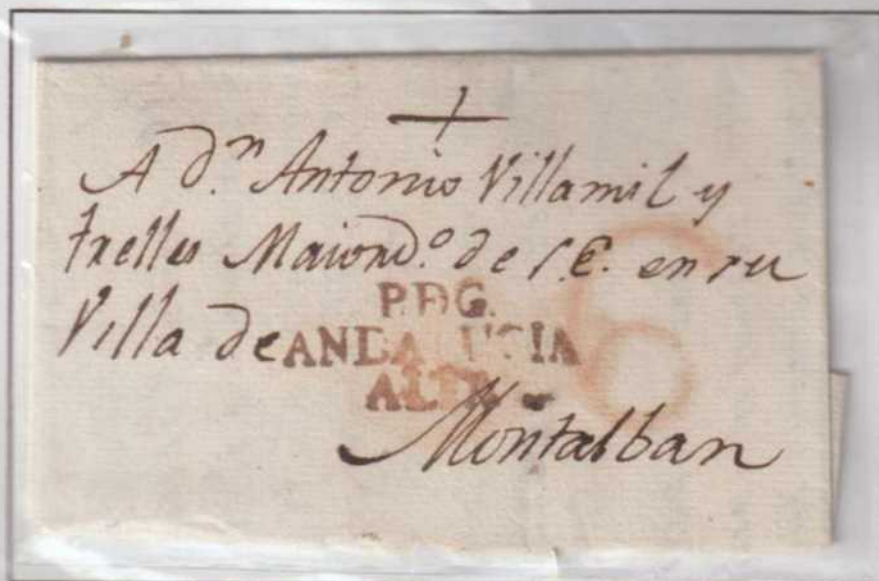 A d.ⁿ Antonio Villamil y
trelles Maiord.º de S.E. en su
Villa de
P.D G.
ANDALUCIA
ALTA
6
Montalban